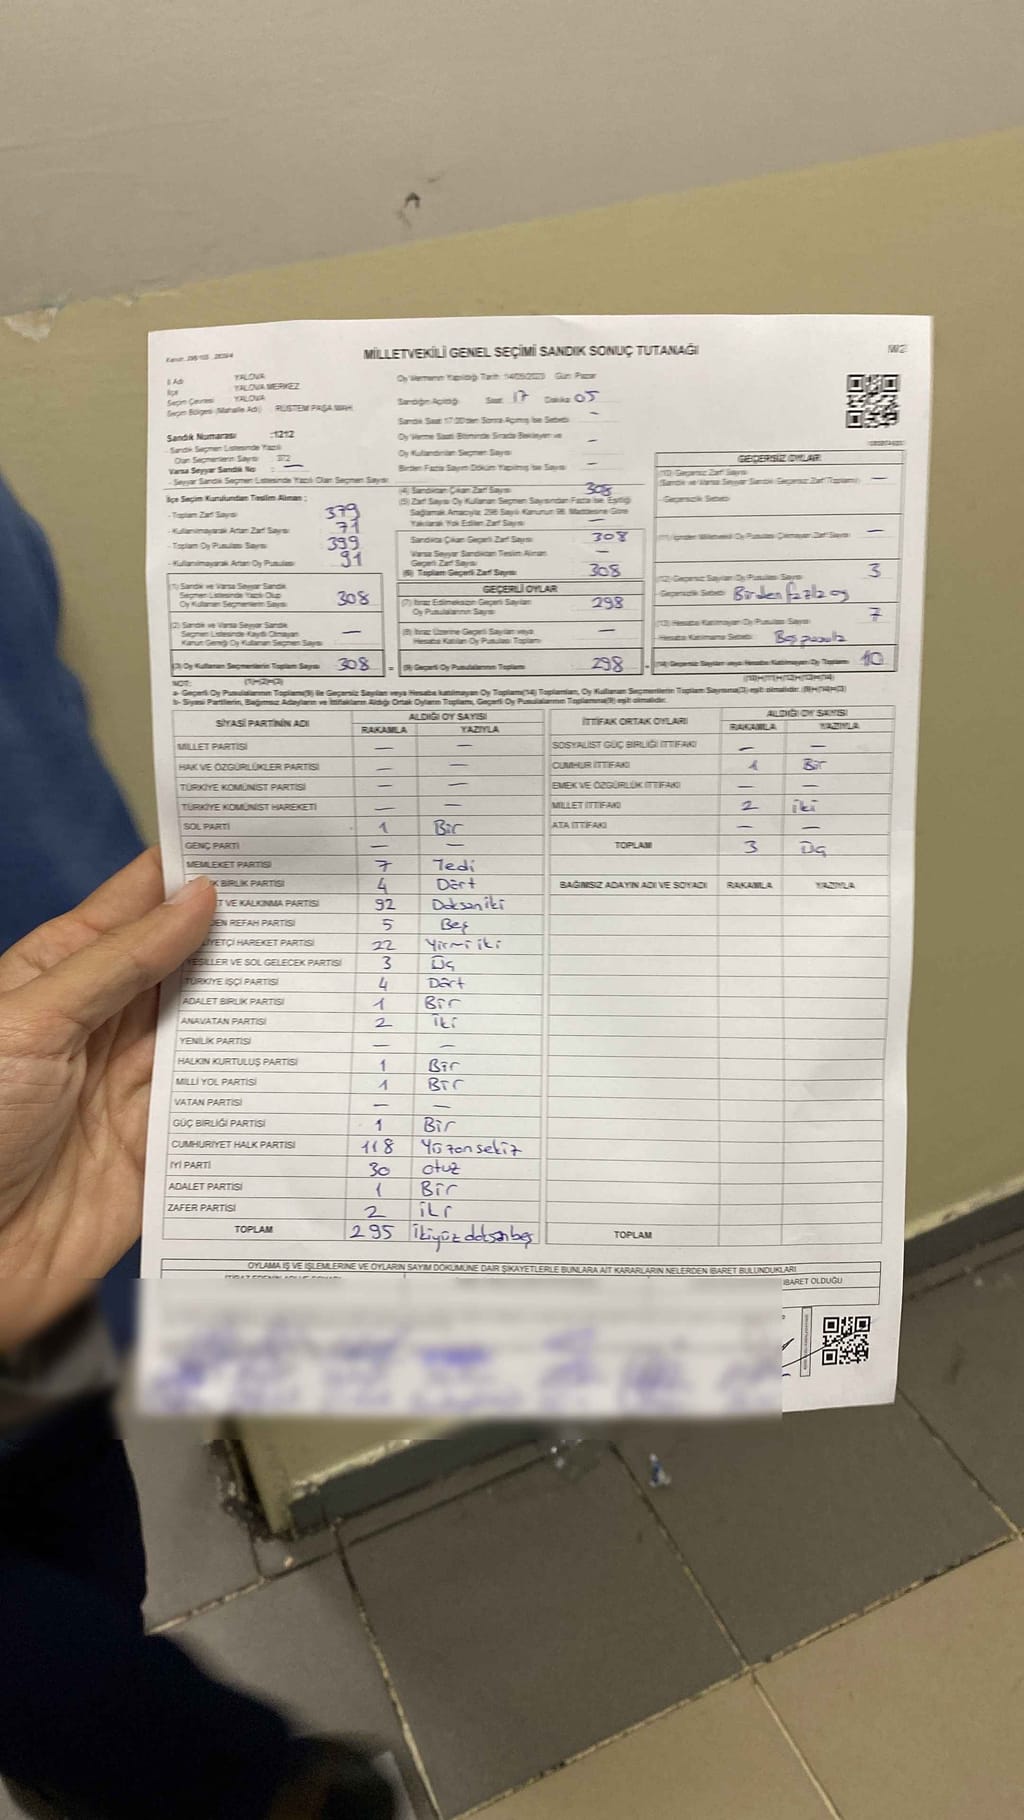 MİLLETVEKİLİ GENEL SEÇİMİ SANDIK SONUÇ TUTANAĞI
İl Adı YALOVA
İlçe YALOVA MERKEZ
Seçim Çevresi YALOVA
Seçim Bölgesi (Mahalle Adı) : RÜSTEM PAŞA MAH.
Sandık Numarası :1212
Sandık Seçmen Listesinde Yazılı
Olan Seçmenlerin Sayısı 372
Varsa Seyyar Sandık No : —
- Seyyar Sandık Seçmen Listesinde Yazılı Olan Seçmen Sayısı
İlçe Seçim Kurulundan Teslim Alınan ;
- Toplam Zarf Sayısı 379
- Kullanılmayarak Artan Zarf Sayısı 71
- Toplam Oy Pusulası Sayısı 399
- Kullanılmayarak Artan Oy Pusulası 91
(1) Sandık ve Varsa Seyyar Sandık
Seçmen Listesinde Yazılı Olup
Oy Kullanan Seçmenlerin Sayısı 308
(2) Sandık ve Varsa Seyyar Sandık
Seçmen Listesinde Kayıtlı Olmayan
Kanun Gereği Oy Kullanan Seçmen Sayısı —
(3) Oy Kullanan Seçmenlerin Toplam Sayısı 308
(1)+(2)=(3)
Oy Vermenin Yapıldığı Tarih :14/05/2023 Gün: Pazar
Sandığın Açıldığı Saat 17 Dakika 05
Sandık Saat 17.00'den Sonra Açılmış İse Sebebi —
Oy Verme Saati Bitiminde Sırada Bekleyen ve
Oy Kullandırılan Seçmen Sayısı —
Birden Fazla Sayım Döküm Yapılmış İse Sayısı —
(4) Sandıktan Çıkan Zarf Sayısı 308
(5) Zarf Sayısı Oy Kullanan Seçmen Sayısından Fazla İse, Eşitliği
Sağlamak Amacıyla; 298 Sayılı Kanunun 98. Maddesine Göre
Yakılarak Yok Edilen Zarf Sayısı —
Sandıkta Çıkan Geçerli Zarf Sayısı 308
Varsa Seyyar Sandıktan Teslim Alınan
Geçerli Zarf Sayısı —
(6) Toplam Geçerli Zarf Sayısı 308
GEÇERLİ OYLAR
(7) İtiraz Edilmeksizin Geçerli Sayılan
Oy Pusulalarının Sayısı 298
(8) İtiraz Üzerine Geçerli Sayılan veya
Hesaba Katılan Oy Pusulası Toplamı —
(9) Geçerli Oy Pusulalarının Toplamı 298
GEÇERSİZ OYLAR
(10) Geçersiz Zarf Sayısı
(Sandık ve Varsa Seyyar Sandık Geçersiz Zarf Toplamı) —
- Geçersizlik Sebebi
(11) İçinden Milletvekili Oy Pusulası Çıkmayan Zarf Sayısı —
(12) Geçersiz Sayılan Oy Pusulası Sayısı 3
- Geçersizlik Sebebi Birden fazla oy
(13) Hesaba Katılmayan Oy Pusulası Sayısı 7
Hesaba Katılmama Sebebi Boş pusula
(14) Geçersiz Sayılan veya Hesaba Katılmayan Oy Toplamı 10
(10)+(11)+(12)+(13)=(14)
NOT:
a- Geçerli Oy Pusulalarının Toplamı(9) ile Geçersiz Sayılan veya Hesaba katılmayan Oy Toplamı(14) Toplamları, Oy Kullanan Seçmenlerin Toplam Sayısına(3) eşit olmalıdır. (9)+(14)=(3)
b- Siyasi Partilerin, Bağımsız Adayların ve İttifakların Aldığı Ortak Oyların Toplamı, Geçerli Oy Pusulalarının Toplamına(9) eşit olmalıdır.
SİYASİ PARTİNİN ADI ALDIĞI OY SAYISI
RAKAMLA YAZIYLA
MİLLET PARTİSİ — —
HAK VE ÖZGÜRLÜKLER PARTİSİ — —
TÜRKİYE KOMÜNİST PARTİSİ — —
TÜRKİYE KOMÜNİST HAREKETİ — —
SOL PARTİ 1 Bir
GENÇ PARTİ — —
MEMLEKET PARTİSİ 7 Yedi
K BİRLİK PARTİSİ 4 Dört
T VE KALKINMA PARTİSİ 92 Doksan iki
DEN REFAH PARTİSİ 5 Beş
LİYETÇİ HAREKET PARTİSİ 22 Yirmi iki
YEŞİLLER VE SOL GELECEK PARTİSİ 3 Üç
TÜRKİYE İŞÇİ PARTİSİ 4 Dört
ADALET BİRLİK PARTİSİ 1 Bir
ANAVATAN PARTİSİ 2 İki
YENİLİK PARTİSİ — —
HALKIN KURTULUŞ PARTİSİ 1 Bir
MİLLİ YOL PARTİSİ 1 Bir
VATAN PARTİSİ — —
GÜÇ BİRLİĞİ PARTİSİ 1 Bir
CUMHURİYET HALK PARTİSİ 118 Yüzonsekiz
İYİ PARTİ 30 otuz
ADALET PARTİSİ 1 Bir
ZAFER PARTİSİ 2 İki
TOPLAM 295 İkiyüz doksanbeş
İTTİFAK ORTAK OYLARI ALDIĞI OY SAYISI
RAKAMLA YAZIYLA
SOSYALİST GÜÇ BİRLİĞİ İTTİFAKI — —
CUMHUR İTTİFAKI 1 Bir
EMEK VE ÖZGÜRLÜK İTTİFAKI — —
MİLLET İTTİFAKI 2 iki
ATA İTTİFAKI — —
TOPLAM 3 Üç
BAĞIMSIZ ADAYIN ADI VE SOYADI RAKAMLA YAZIYLA
TOPLAM
OYLAMA İŞ VE İŞLEMLERİNE VE OYLARIN SAYIM DÖKÜMÜNE DAİR ŞİKAYETLERLE BUNLARA AİT KARARLARIN NELERDEN İBARET BULUNDUKLARI
İBARET OLDUĞU